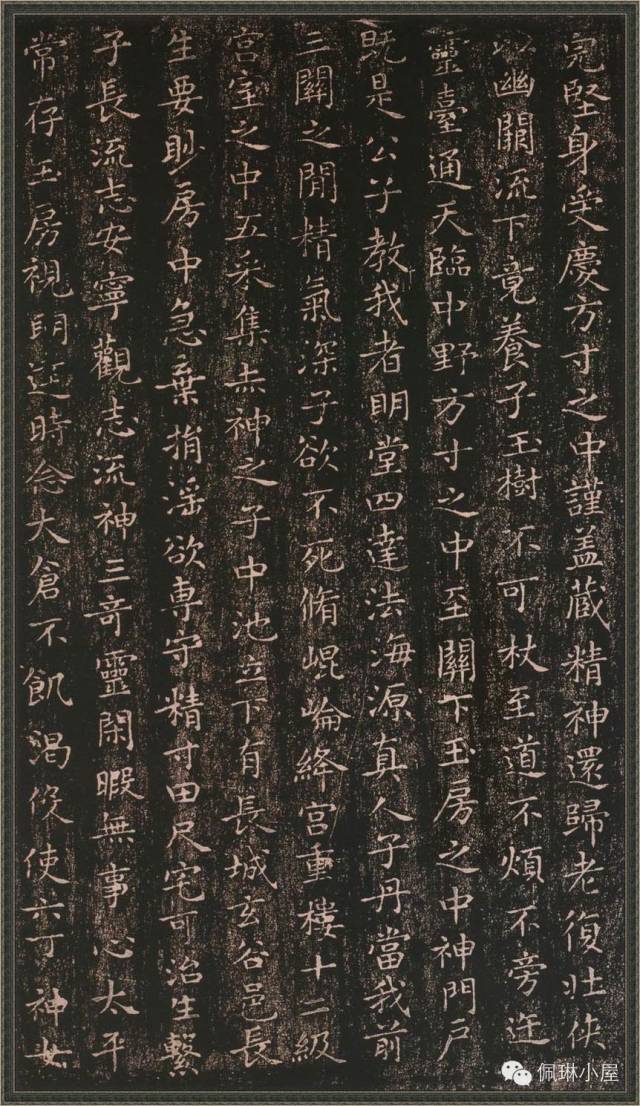 完堅身受慶方寸之中謹盖藏精神還歸老復壯俠
以幽闕流下竟養子玉樹不可杖至道不煩不旁迕
靈臺通天臨中野方寸之中至關下玉房之中神門戶
既是公子教我者明堂四達法海源真人子丹當我前
三關之閒精氣深子欲不死脩崐崘絳宫重樓十二級
宫室之中五采集赤神之子中池立下有長城玄谷邑長
生要眇房中急棄捐淫欲專守精寸田尺宅可治生繫
子長流志安寧觀志流神三奇靈閑暇無事心太平
常存玉房視明達時念大倉不飢渴役使六丁神女
佩琳小屋